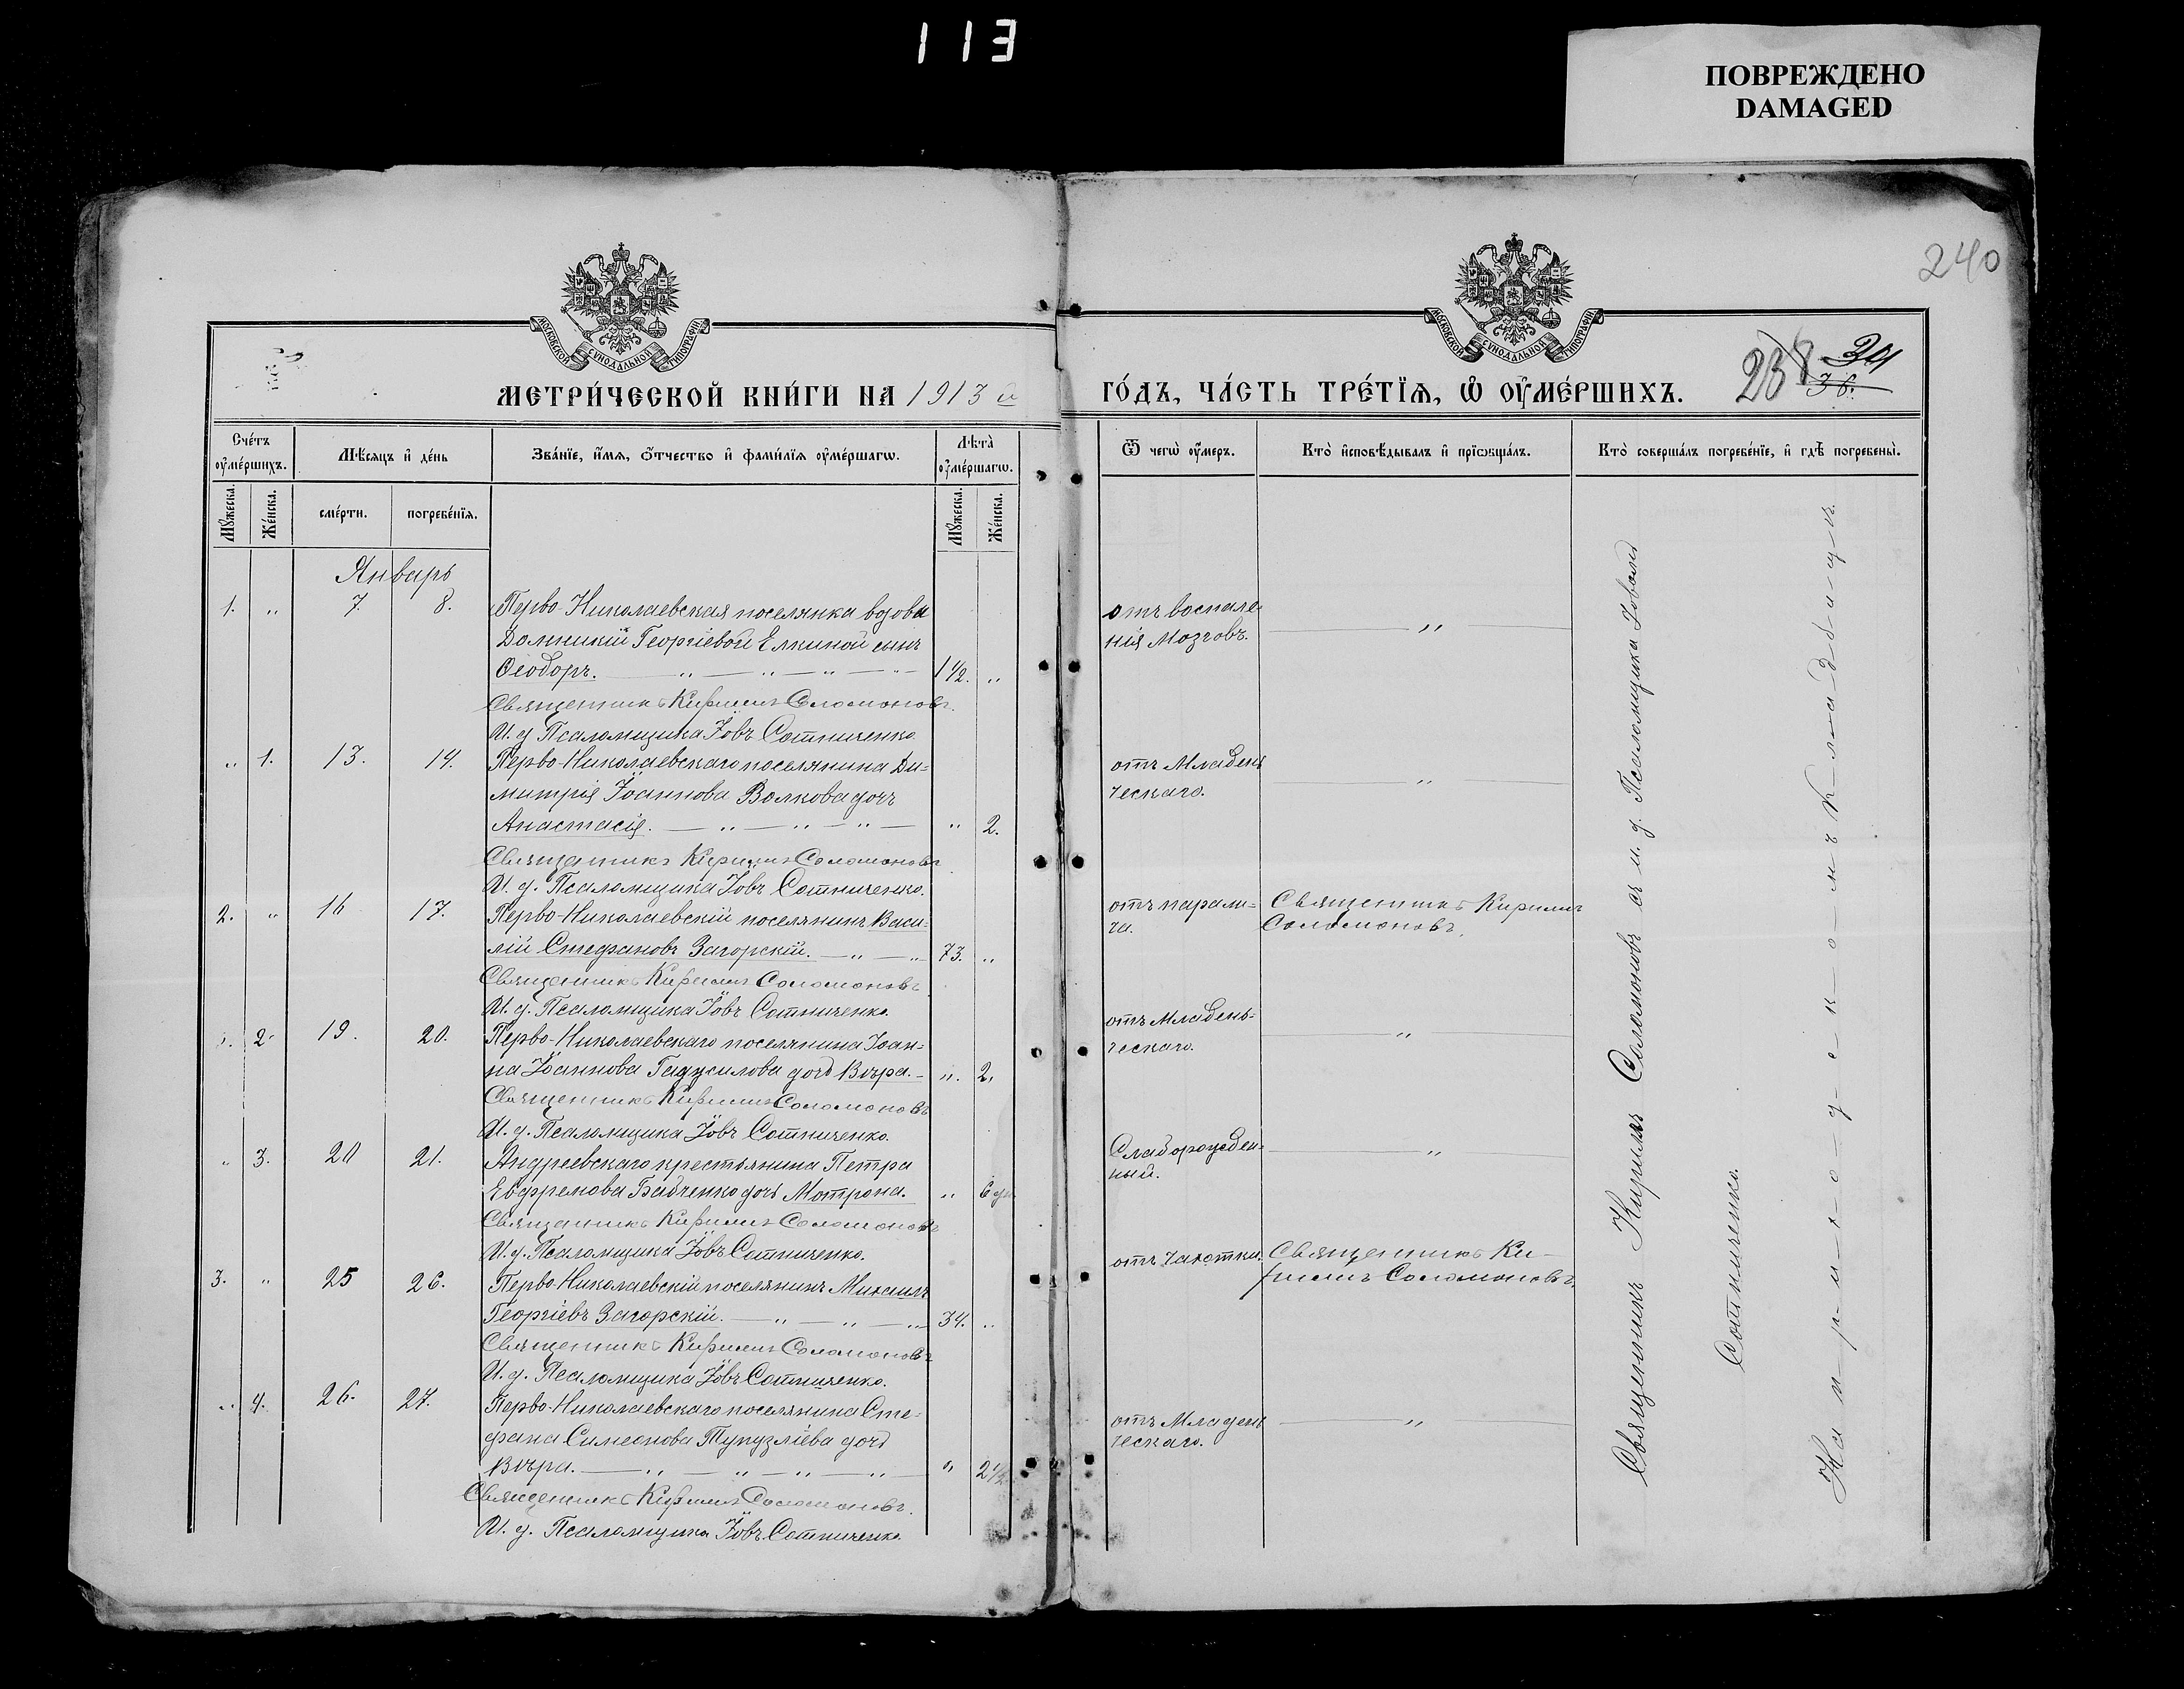 113
ПОВРЕЖДЕНО
DAMAGED
240
МОСКОВСКОЙ СѴНОДАЛЬНОЙ ТИПОГРАФІИ
МОСКОВСКОЙ СѴНОДАЛЬНОЙ ТИПОГРАФІИ
МЕТРИ́ЧЕСКОЙ КНИ́ГИ НА 1913 й
ГО́ДЪ, ЧА́СТЬ ТРЕ́ТЇѦ, Ѡ҆ ОУ҆МЕ́РШИХЪ.
238
36.
Сче́тъ оу҆ме́ршихъ.
Мꙋ́жеска.
Же́нска.
Мѣ́сѧцъ и҆ де́нь
сме́рти.
погребе́нїѧ.
Зва́нїе, и҆́мѧ, ѻ҆́тчество и҆ фами́лїѧ оу҆ме́ршагѡ.
Лѣта̀ оу҆ме́ршагѡ.
Мꙋ́жеска.
Же́нска.
Ѿ чегѡ̀ оу҆́меръ.
Кто̀ и҆сповѣ́дывалъ и҆ прїѡбща́лъ.
Кто̀ соверша́лъ погребе́нїе, и҆ гдѣ̀ погребены̀.
Январь
1. " 7. 8. Перво-Николаевская поселянка вдова
Домникіи Георгіевой Елкиной сынъ
Ѳеодоръ. 1½. "
отъ воспале-
нія Мозговъ. "
Священникъ Кириллъ Соломоновъ.
И. д. Псаломщика Іовъ Сотниченко.
" 1. 13. 14. Перво-Николаевскаго поселянина Ди-
митрія Іоаннова Волкова дочь
Анастасія. " 2.
отъ Младен-
ческаго. "
Священникъ Кириллъ Соломоновъ
И. д. Псаломщика Іовъ Сотниченко.
2. " 16 17. Перво-Николаевскій поселянинъ Васи-
лій Стефановъ Загорскій. 73. "
отъ парали-
ча.
Священникъ Кириллъ
Соломоновъ.
Священникъ Кириллъ Соломоновъ
И. д. Псаломщика Іовъ Сотниченко.
". 2. 19. 20. Перво-Николаевскаго поселянина Іоан-
на Іоаннова дочь Вѣра. ". 2.
отъ Младень-
ческаго. "
Священникъ Кириллъ Соломоновъ
И. д. Псаломщика Іовъ Сотниченко.
" 3. 20 21. Андреевскаго крестьянина Петра
Евфремова Бабченко дочь Мотрона. " 6 дн.
Слаборожден-
ный. "
Священникъ Кириллъ Соломоновъ
И. д. Псаломщика Іовъ Сотниченко.
3. " 25 26. Перво-Николаевскій поселянинъ Михаилъ
Георгіевъ Загорскій. 34. "
отъ Чахотки.
Священникъ Ки-
риллъ Соломоновъ.
Священникъ Кириллъ Соломоновъ
И. д. Псаломщика Іовъ Сотниченко.
" 4. 26. 27. Перво-Николаевскаго поселянина Сте-
фана Симеонова Тукузліева дочь
Вѣра. " 2½
отъ Младен-
ческаго. "
Священникъ Кириллъ Соломоновъ.
И. д. Псаломщика Іовъ Сотниченко.
Священникъ Кириллъ Соломоновъ съ и. д. Псаломщика Іовомъ
Сотниченко.
На приходскомъ Кладбищѣ.